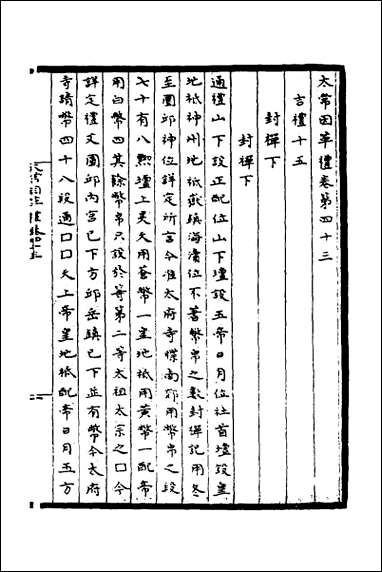 太常因革禮卷第四十三
吉禮十五
封禪下
封禪下
通禮山下設正配位山下壇設五帝日月位社首壇設皇
地祇神州地祇嶽鎮海瀆位不著幣帛之數封禪記用冬
至圜邱神位詳定所言今准太府寺牒南郊用幣帛之段
七十有八熙壇上昊天用蒼幣一皇地祇用黃幣一配帝
用白幣四其餘幣帛只設於等第二等太祖太宗之口今
詳定禮文圜邱內官已下方邱岳鎮已下並有幣令太府
寺請幣四十八段通口口天上帝皇地祇配帝日月五方